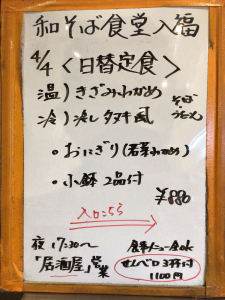 和そば食堂入福
4/4 <日替定食>
温）きざみわかめ
冷）冷しタヌキ風
そば
うどん
・おにぎり（若菜わかめ）
・小鉢 2品付
¥880
入口こちら
夜 17:30〜
「居酒屋」営業
食事メニュー全ok
せんべロ 3杯付
1100円